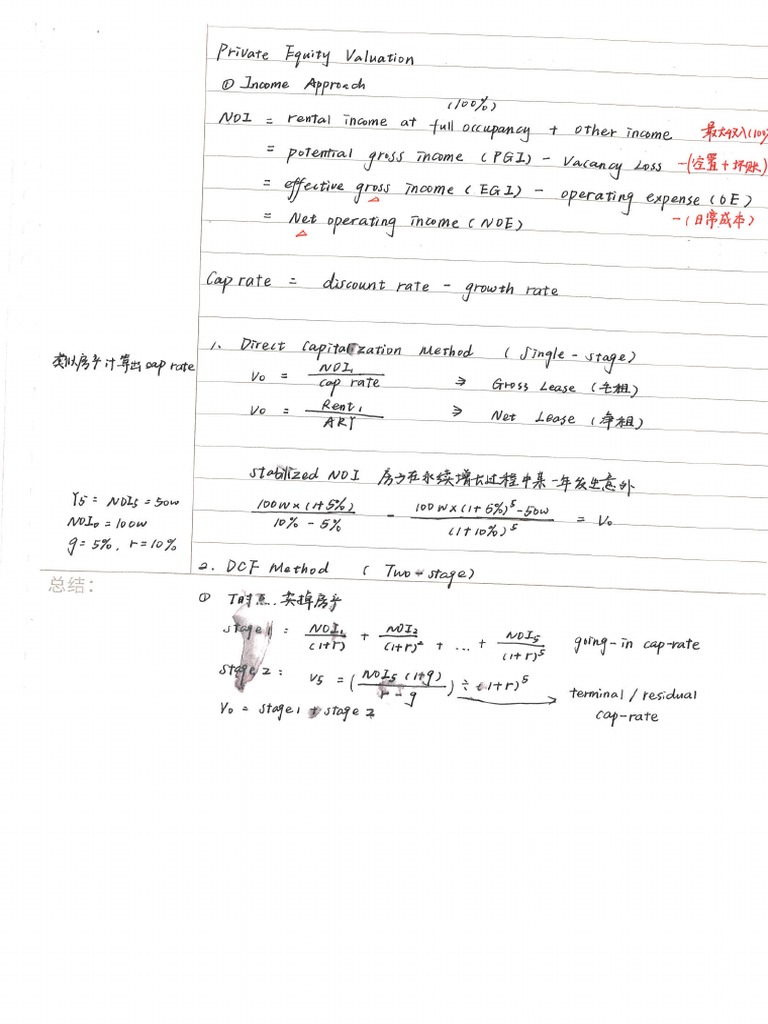 Private Equity Valuation
① Income Approach
(100%)
NOI = rental income at full occupancy + other income 最大收入(100%
= potential gross income (PGI) - Vacancy Loss -(空置+坏账)
= effective gross income (EGI) - operating expense (OE)
= Net operating income (NOE) -(日常成本)
Cap rate = discount rate - growth rate
1. Direct Capitalization Method (Single-stage)
类似房子计算出cap rate
V₀ = NOI₁ / cap rate ⇒ Gross Lease (毛租)
V₀ = Rent₁ / ARY ⇒ Net Lease (净租)
stabilized NOI 房子在永续增长过程中某一年发生意外
Y5 = NOI₅ = 50w
NOI₀ = 100w
g = 5%, r = 10%
100w×(1+5%) / 10% - 5% - 100w×(1+5%)⁵-50w / (1+10%)⁵ = V₀
2. DCF Method (Two-stage)
总结:
① T时点,卖掉房子
stage 1: NOI₁/(1+r) + NOI₂/(1+r)² + ... + NOI₅/(1+r)⁵ going-in cap-rate
stage 2: V5 = (NOI₅(1+g) / r-g) ÷ (1+r)⁵ → terminal / residual
cap-rate
V₀ = stage1 + stage 2